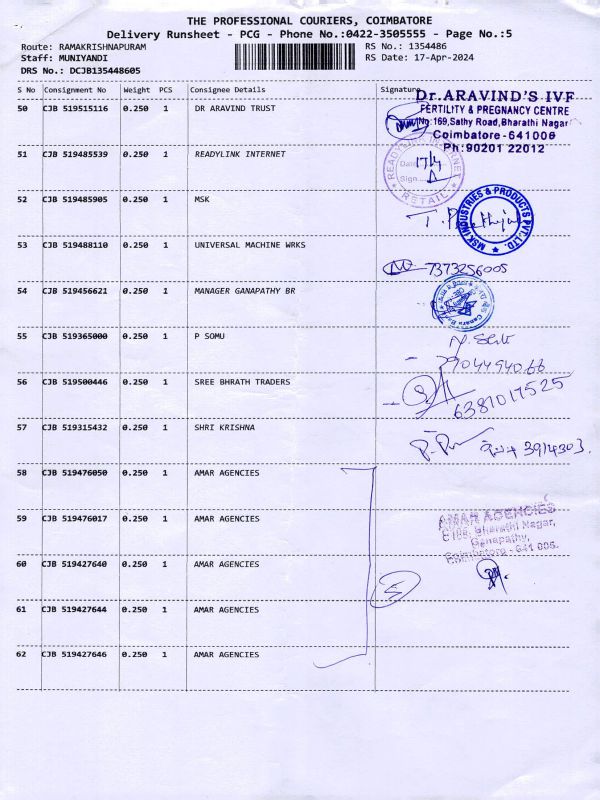 THE PROFESSIONAL COURIERS, COIMBATORE
Delivery Runsheet - PCG - Phone No.:0422-3505555 - Page No.:5
Route: RAMAKRISHNAPURAM
RS No.: 1354486
Staff: MUNIYANDI
RS Date: 17-Apr-2024
DRS No.: DCJB135448605
S No Consignment No Weight PCS Consignee Details Signature
50 CJB 519515116 0.250 1 DR ARAVIND TRUST
Dr.ARAVIND'S IVF
FERTILITY & PREGNANCY CENTRE
No:169,Sathy Road,Bharathi Nagar
Coimbatore-641006
Ph:90201 22012
51 CJB 519485539 0.250 1 READYLINK INTERNET
READYLINK INTERNET
Date 17/4
Sign
RETAIL
52 CJB 519485905 0.250 1 MSK
MSK INDUSTRIES & PRODUCTS PVT. LTD.
53 CJB 519488110 0.250 1 UNIVERSAL MACHINE WRKS
7373256005
54 CJB 519456621 0.250 1 MANAGER GANAPATHY BR
55 CJB 519365000 0.250 1 P SOMU
56 CJB 519500446 0.250 1 SREE BHRATH TRADERS
6381017525
57 CJB 519315432 0.250 1 SHRI KRISHNA
3914303.
58 CJB 519476050 0.250 1 AMAR AGENCIES
59 CJB 519476017 0.250 1 AMAR AGENCIES
AMAR AGENCIES
Bharathi Nagar,
Ganapathy,
Coimbatore - 641 006.
60 CJB 519427640 0.250 1 AMAR AGENCIES
5
61 CJB 519427644 0.250 1 AMAR AGENCIES
62 CJB 519427646 0.250 1 AMAR AGENCIES